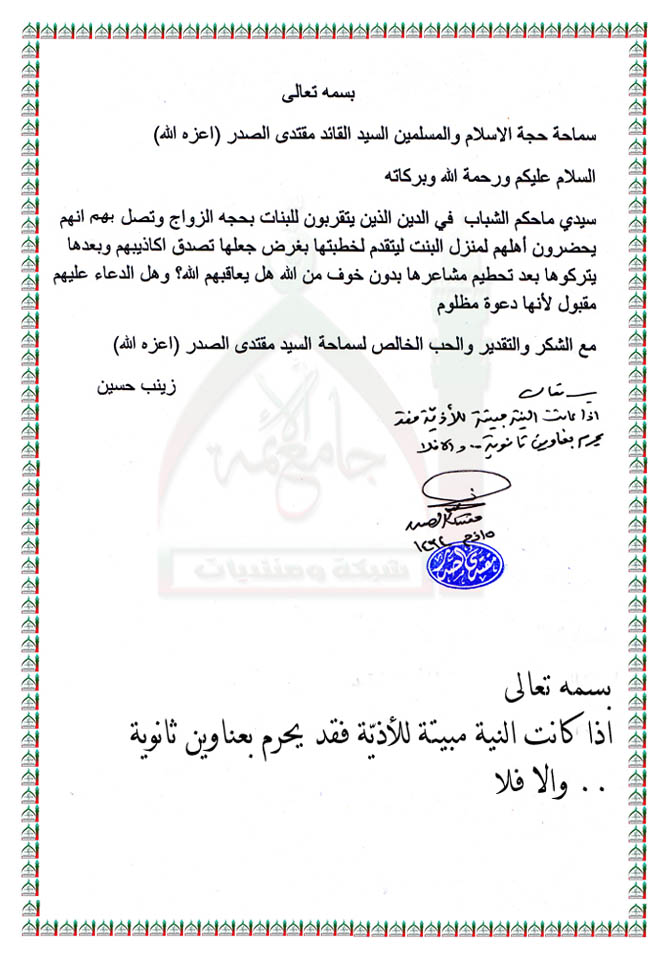 بسمه تعالى
سماحة حجة الاسلام والمسلمين السيد القائد مقتدى الصدر (اعزه الله)
السلام عليكم ورحمة الله وبركاته
سيدي ماحكم الشباب في الدين الذين يتقربون للبنات بحجه الزواج وتصل بهم انهم
يحضرون أهلهم لمنزل البنت ليتقدم لخطبتها بغرض جعلها تصدق اكاذيبهم وبعدها
يتركوها بعد تحطيم مشاعرها بدون خوف من الله هل يعاقبهم الله؟ وهل الدعاء عليهم
مقبول لأنها دعوة مظلوم
مع الشكر والتقدير والحب الخالص لسماحة السيد مقتدى الصدر (اعزه الله)
زينب حسين
بسمه تعالى
اذا كانت النية مبيتة للأذيّة فقد
يحرم بعناوين ثانوية .. والا فلا
مقتدى الصدر
مقتدى الصدر
جامع الأئمة
شبكة ومنتديات
بسمه تعالى
اذا كانت النية مبيتة للأذيّة فقد يحرم بعناوين ثانوية
.. والا فلا